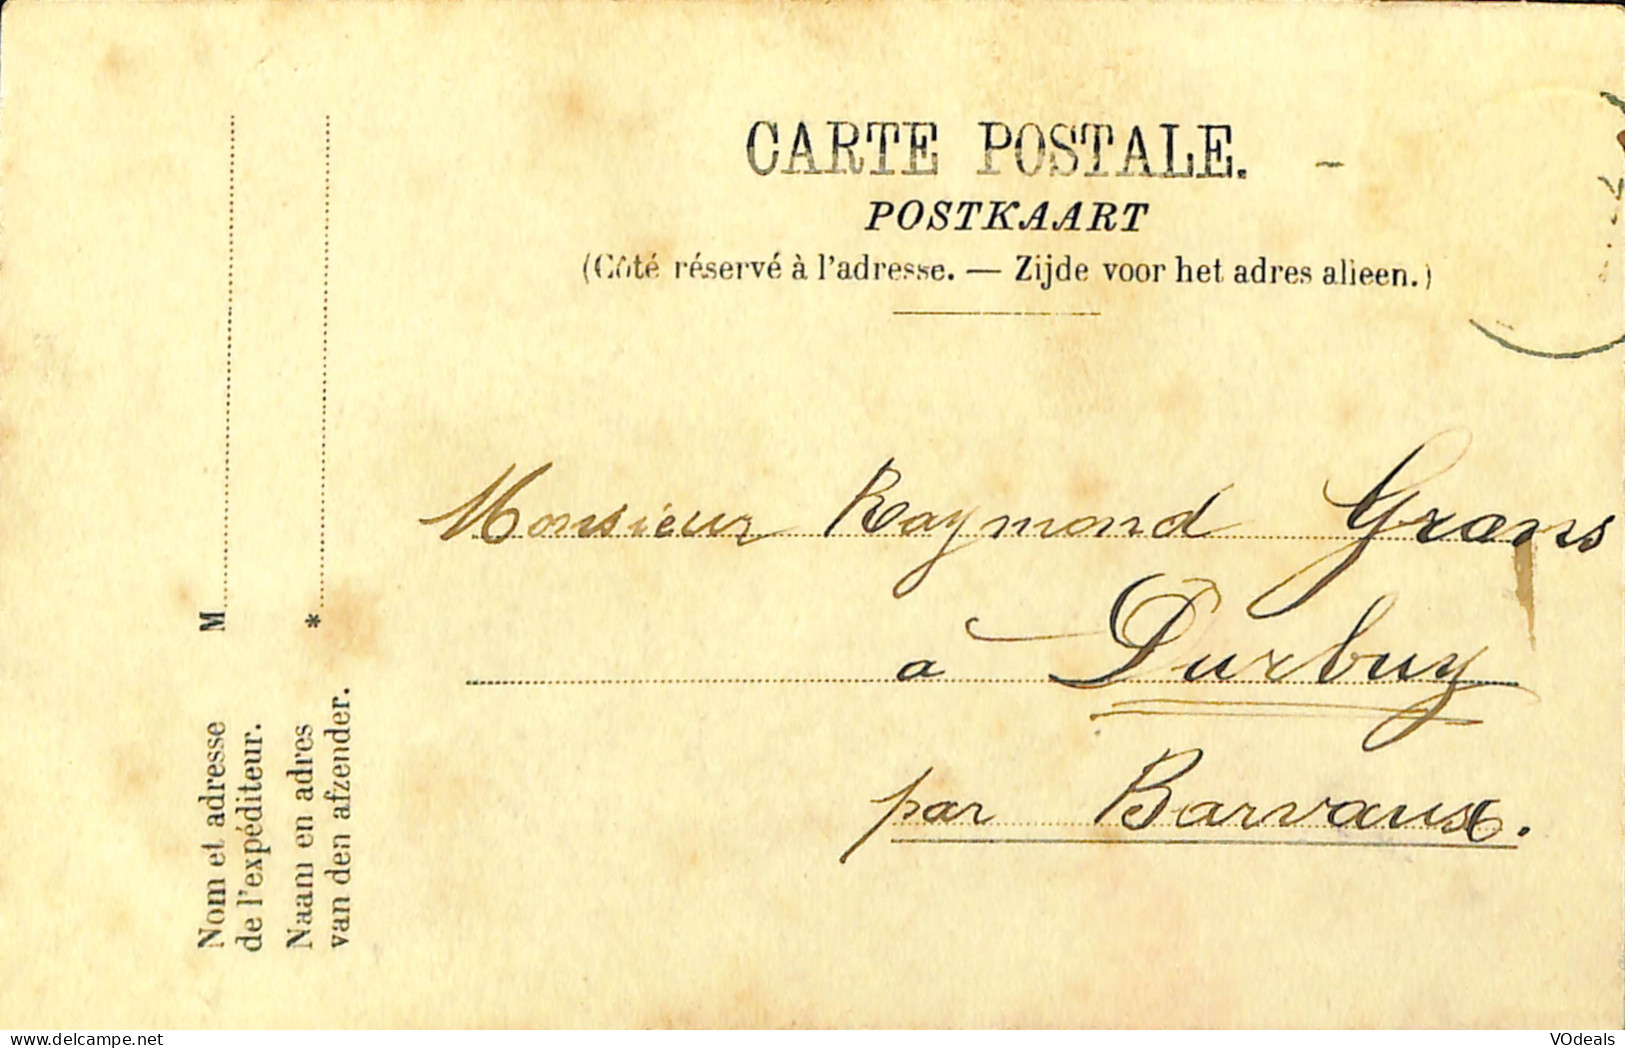 CARTE POSTALE.
POSTKAART
(Côté réservé à l'adresse. — Zijde voor het adres alleen.)
Monsieur Raymond
à Durbuy
par Barvaux.
M
*
Nom et adresse
de l'expéditeur.
Naam en adres
van den afzender.
delcampe.net
VOdeals